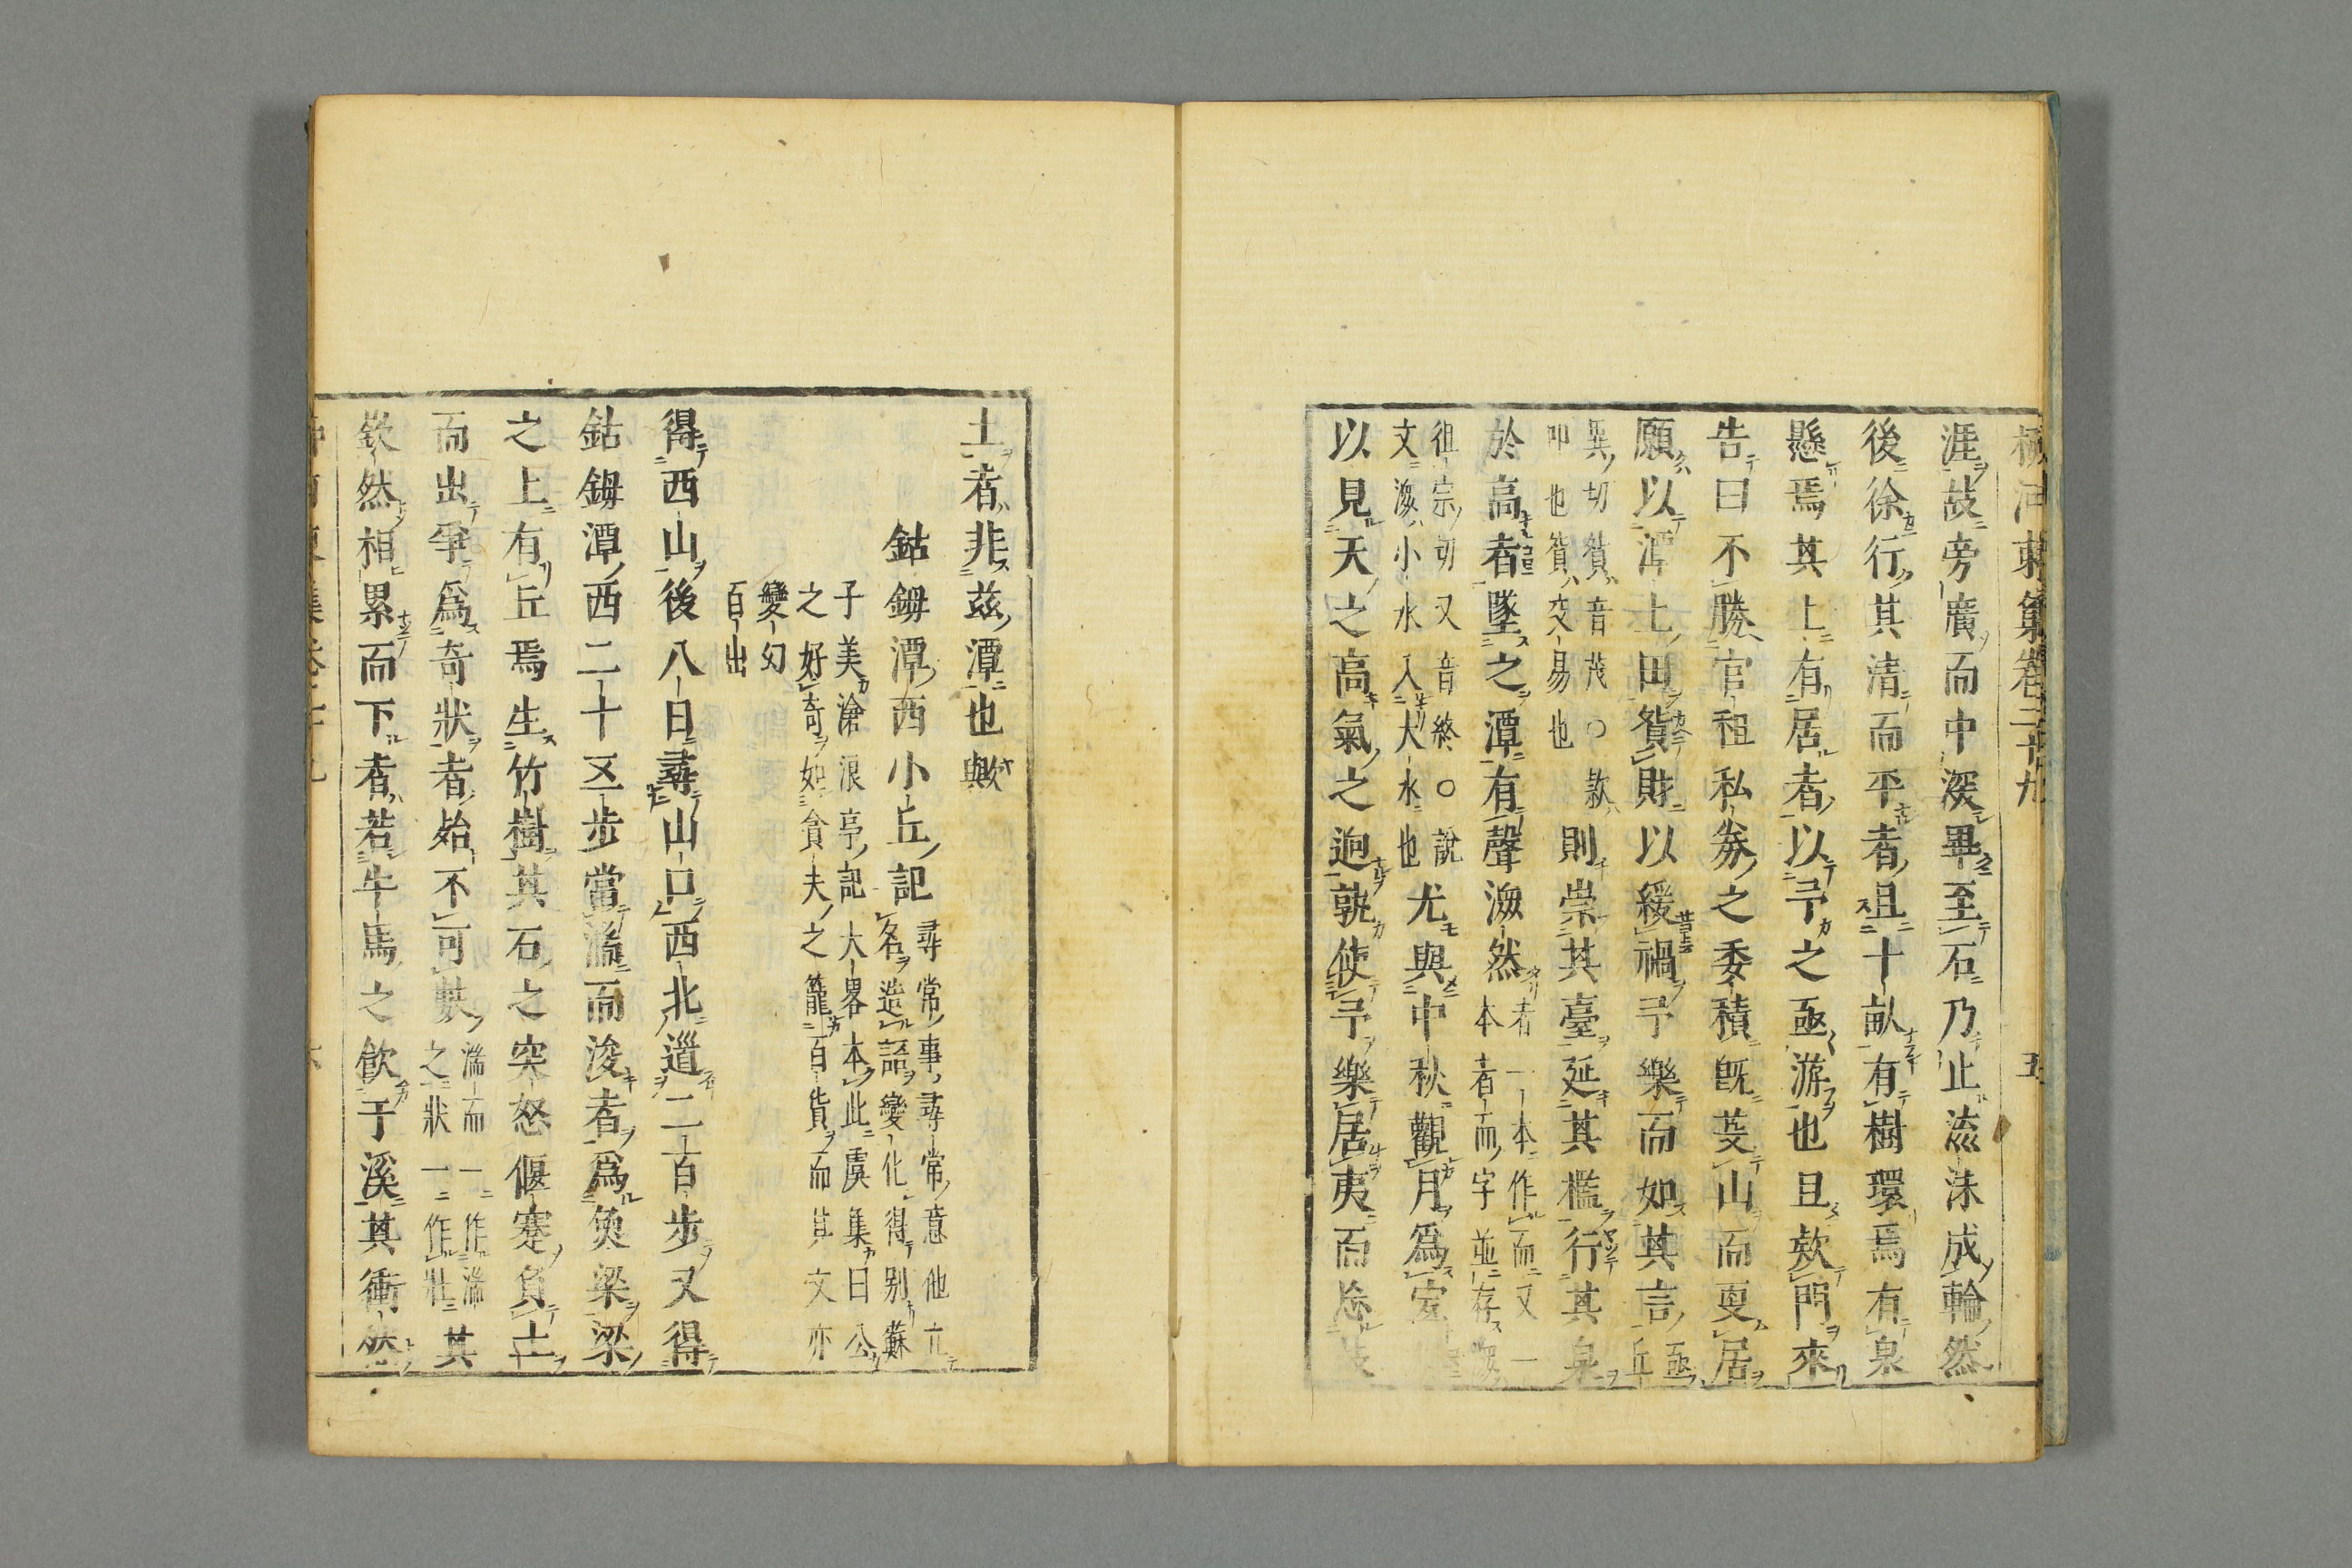 柳河東集卷二十九 五
涯故旁廣而中深畢至石乃止流沫成輪然
後徐行其清而平者且十畝有樹環焉有泉
懸焉其上有居者以予之亟游也且款門來
告曰不勝官租私券之委積既芟山而更居
願以潭上田貿財以緩禍予樂而如其言亟丘
異切貿音茂○款
叩也貿交易也
則崇其臺延其檻行其泉
於高者墜之潭有聲潨然者一本作而又一
本者而字並存潨
徂宗切又音終○說
文潨小水入大水也
尤與中秋觀月爲宜
以見天之高氣之逈孰使予樂居夷而忘故
土者非茲潭也歟
鈷鉧潭西小丘記
尋常事尋常意他立
名造語變化得別蘇
子美滄浪亭記大畧本此虞集曰公
之好奇如貪夫之籠百貨而其文亦
變幻
百出
得西山後八日尋山口西北道二百步又得
鈷鉧潭西二十五步當湍而浚者爲魚梁梁
之上有丘焉生竹樹其石之突怒偃蹇負土
而出爭爲奇狀者殆不可數
湍而一作湍
之狀一作壯
其
嶔然相累而下者若牛馬之飲于溪其衝然